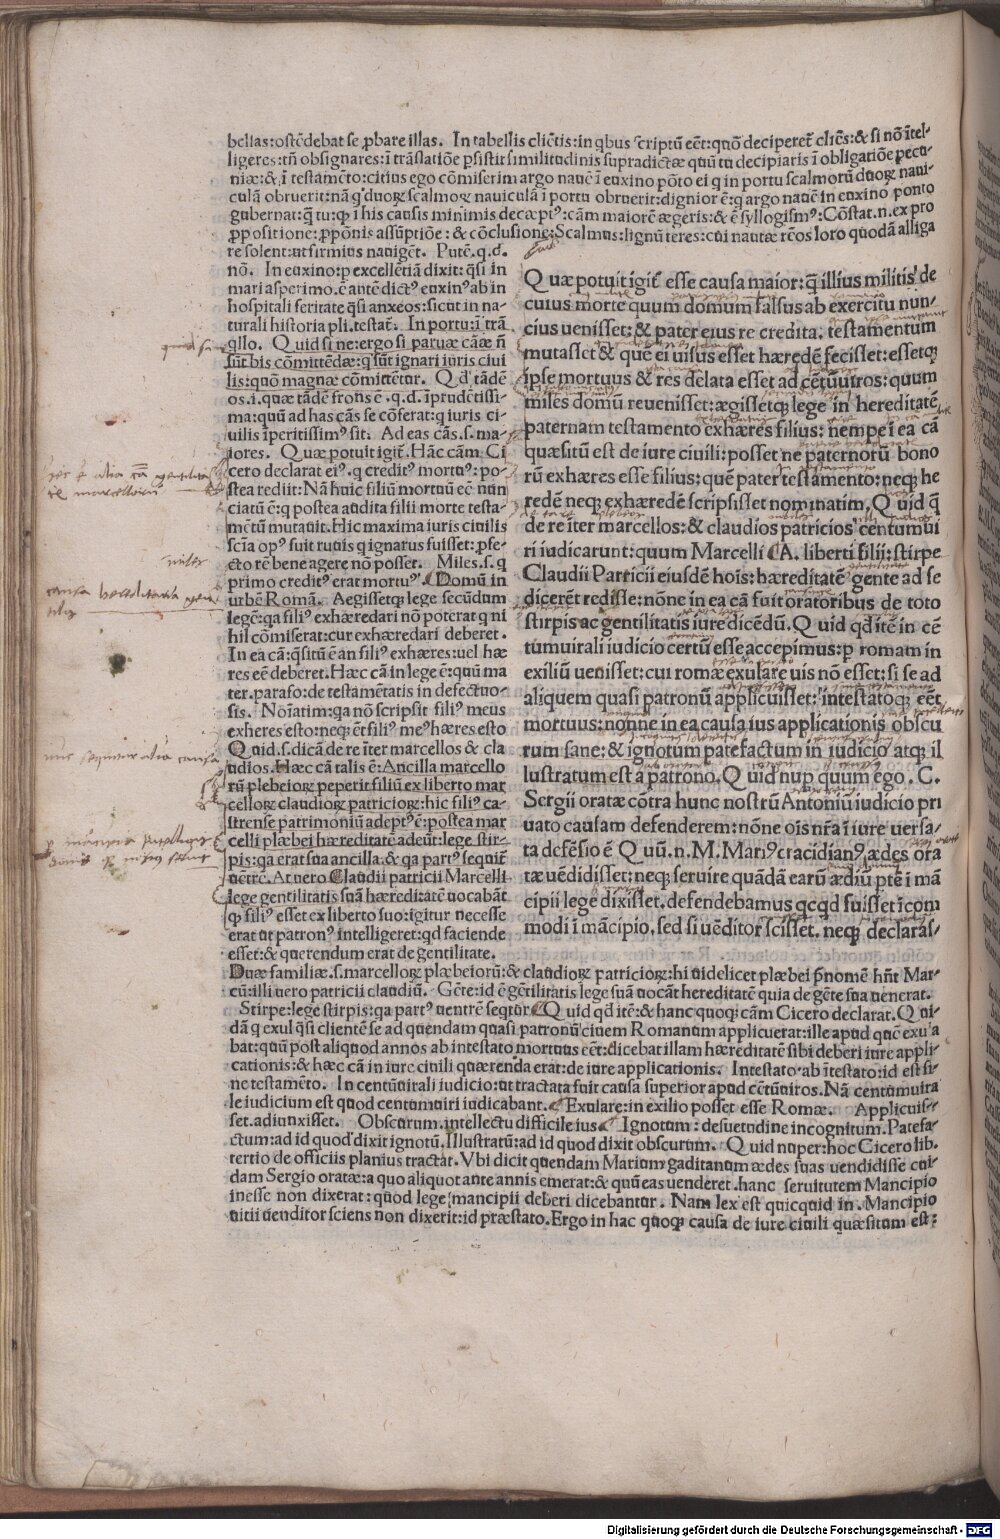 bellas:ostēdebat se ꝓbare illas. In tabellis cliētis:in qbus scriptū eēt:quō deciperet᷑ cliēs:& si nō ītel-
ligeres:tn̄ obsignares:ī trāslatiōe ꝑsistit similitudinis supradictæ quū tu decipiaris ī obligatiōe pecu
niæ:&,ī testamēto:citius ego cōmiserim argo nauē ī euxino pōto ei q in portu scalmorū duoꝝ naui-
culā obruerit:nā q duoꝝ scalmoꝝ nauiculā ī portu obruerit:dignior ē:q argo nauē in euxino ponto
gubernat:q̄ tu:qꝫ ī his causis minimis decæptꝰ:cām maiorē ægeris:& ē syllogismꝰ:Cōstat.n.ex pro
ꝓp ositione:ꝓpōnis assūptiōe:& cōclusione:Scalmus:lignū teres:cui nautæ rēos loro quodā alliga
re solent:ut firmius nauigēt. Putē.q.d.
nō. In euxino:p excellētiā dixit:q̄si in
mari asperimo.ē ante dictꝰ euxinꝰ ab in
hospitali feritate q̄si anxeos:sicut in na-
turali historia pli.testat᷑. In portu:ī trā
qllo. Quid si ne:ergo si paruæ cāæ n̄
sūt his cōmittēdæ:q sūt ignari iuris ciui
lis:quō magnæ cōmittētur. Q d tādē
os.i.quæ tādē frons ē.q.d.īprudētissi-
ma:quū ad has cās se cōferat:q iuris ci-
uilis īperitissimꝰ sit. Ad eas cās.s.ma-
iores. Quæ potuit igit᷑.Hāc cām Ci
cero declarat eiꝰ.q creditꝰ mortuꝰ:po-
stea rediit:Nā huic filiū mortuū eē nun
ciatū ē:q postea audita filii morte testa-
mētū mutauit.Hic maxima iuris ciuilis
sc̄ia opꝰ fuit rutiis q ignarus fuisset:ꝑfe-
cto rē bene agere nō posset. Miles.s.q
primo creditꝰ erat mortuꝰ. Domū in
urbē Romā. Aegissetqꝫ lege secūdum
legē:qa filiꝰ exhæredari nō poterat q ni
hil cōmiserat:cur exhæredari deberet.
In ea cā:q̄sitū ē an filiꝰ exhæres:uel hæ
res eē deberet.Hæc cā in lege ē:quū ma
ter.parafo:de testamētatis in defectuo-
sis. Noīatim:qa nō scripsit filiꝰ meus
exheres esto:neqꝫ ēt filiꝰ meꝰ hæres esto
Quid.s.dicā de re īter marcellos & cla
udios.Hæc cā talis ē:Ancilla marcello
rū plebeioꝝ peperit filiū ex liberto mar
celloꝝ claudioꝝ patricioꝝ:hic filiꝰ ca-
strense patrimoniū adeptꝰ ē:postea mar
celli plæbei hæreditatē adeūt:lege stir-
pis:qa erat sua ancilla.& qa partꝰ sequit᷑
uētrē.At uero Claudii patricii Marcelli
lege gentilitatis suā hæreditatē uocabāt
qꝫ filiꝰ esset ex liberto suo:igitur necesse
erat ut patronꝰ intelligeret:qd faciende
esset:& querendum erat de gentilitate.
Quæ potuit igit᷑ esse causa maior:q̄ illius militis de
cuius morte quum domum falsus ab exercitu nun-
cius uenisset:& pater eius re credita. testamentum
mutasset & quē ei uisus esset hæredē fecisset:essetqꝫ
ipse mortuus & res delata esset ad cētūuiros:quum
miles domū reuenisset:ægissetqꝫ lege in hereditatē
paternam testamento exhæres filius: nempe ī ea cā
quæsitū est de iure ciuili:posset ne paternorū bono
rū exhæres esse filius:quē pater testamento:neqꝫ he
redē neqꝫ exhæredē scripsisset nominatim,Quid q̄
de re īter marcellos:& claudios patricios centumui
ri iudicarunt:quum Marcelli A. liberti filii:stirpe
Claudii Partricii eiusdē hois:hæreditatē gente ad se
dicerēt redisse:nōne in ea cā fuit oratoribus de toto
stirpis ac gentilitatis iure dicēdū.Quid qd itē in cē
tumuirali iudicio certū esse accepimus:p romam in
exiliū uenisset:cui romæ exulare uis nō esset:si se ad
aliquem quasi patronū applicuisset:intestatoqꝫ eēt
mortuus:nonne in ea causa ius applicationis obscu
rum sane:& ignotum patefactum in iudicio atqꝫ il
lustratum est a patrono.Quid nup quum ego .C.
Sergii oratæ cōtra hunc nostrū Antoniū iudicio pri
uato causam defenderem:nōne oīs nr̄a ī iure uersa-
ta defēsio ē Quū.n.M.Mariꝰ cracidianꝰ ædes ora
tæ uēdidisset:neqꝫ seruire quādā earū ædiū ptē ī mā
cipii lege dixisset.defendebamus qcqd fuisset īcom
modi ī mācipio.sed si uēditor scisset. neqꝫ declaras-
Duæ familiæ.s.marcelloꝝ plæbeiorū:& claudioꝝ patricioꝝ:hi uidelicet plæbei p̄nomē hn̄t Mar-
cū:illi uero patricii claudiū. Gēte:id ē gētilitatis lege suā uocāt hereditatē quia de gēte sua uenerat.
Stirpe:lege stirpis:qa partꝰ uentrē seqtur Quid qd itē:& hanc quoqꝫ cām Cicero declarat.Qui-
dā q exul q̄si clientē se ad quendam quasi patronū ciuem Romanum applicuerat:ille apud quē exula
bat:quū post aliquod annos ab intestato mortuus eēt:dicebat illam hæreditatē sibi deberi iure appli-
cationis:& hæc cā in iure ciuili quærenda erat:de iure applicationis. Intestato:ab ītestato:id est si-
ne testamēto. In centūuirali iudicio:ut tractata fuit causa superior apud cētūuiros.Nā centumuira
le iudicium est quod centumuiri iudicabant. Exulare:in exilio posset esse Romæ. Applicuis-
set.adiunxisset. Obscurum.intellectu difficile ius. Ignotum:desuetudine incognitum.Patefa-
ctum:ad id quod dixit ignotū.Illustratū:ad id quod dixit obscurum. Quid nuper:hoc Cicero lib.
tertio de officiis planius tractat.Vbi dicit quendam Marium gaditanum ædes suas uendidisse cui-
dam Sergio oratæ:a quo aliquot ante annis emerat:& quū eas uenderet.hanc seruitutem Mancipio
inesse non dixerat:quod lege mancipii deberi dicebantur. Nam lex est quicquid in. Mancipio
uitii uenditor sciens non dixerit:id præstato.Ergo in hac quoqꝫ causa de iure ciuili quæsitum est:
Digitalisierung gefördert durch die Deutsche Forschungsgemeinschaft - DFG